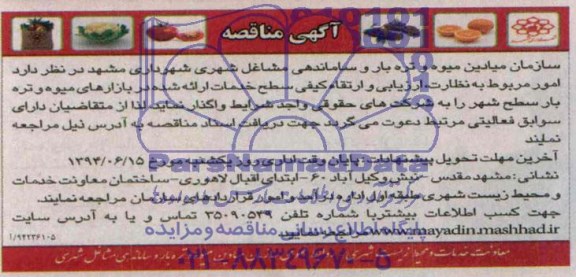 آگهی مناقصه
سازمان میادین میوه و تره بار و ساماندهی مشاغل شهری شهرداری مشهد در نظر دارد
امور مربوط به نظارت، ارزیابی و ارتقاء کیفی سطح خدمات ارائه شده در بازارهای میوه و تره
بار سطح شهر را به شرکت های حقوقی واجد شرایط واگذار نماید لذا از متقاضیان دارای
سوابق فعالیتی مرتبط دعوت می گردد جهت دریافت اسناد مناقصه به آدرس ذیل مراجعه
نمایند
آخرین مهلت تحویل پیشنهادات: پایان وقت اداری روز یکشنبه مورخ ۱۳۹۴/۰۶/۱۵
نشانی: مشهد مقدس - نبش وکیل آباد ۶۰ - ابتدای اقبال لاهوری - ساختمان معاونت خدمات
و محیط زیست شهری طبقه اول اداره درآمد و امور قراردادهای سازمان مراجعه نمایند.
جهت کسب اطلاعات بیشتر با شماره تلفن ۳۵۰۹۰۵۳۹ تماس و یا به آدرس سایت
www.mayadin.mashhad.ir
پایگاه اطلاع رسانی مناقصه و مزایده
۱/۹۴۲۳۶۱۰۵
ParsNamadData
۰۲۱-۸۸۳۴۹۶۷۰-۵